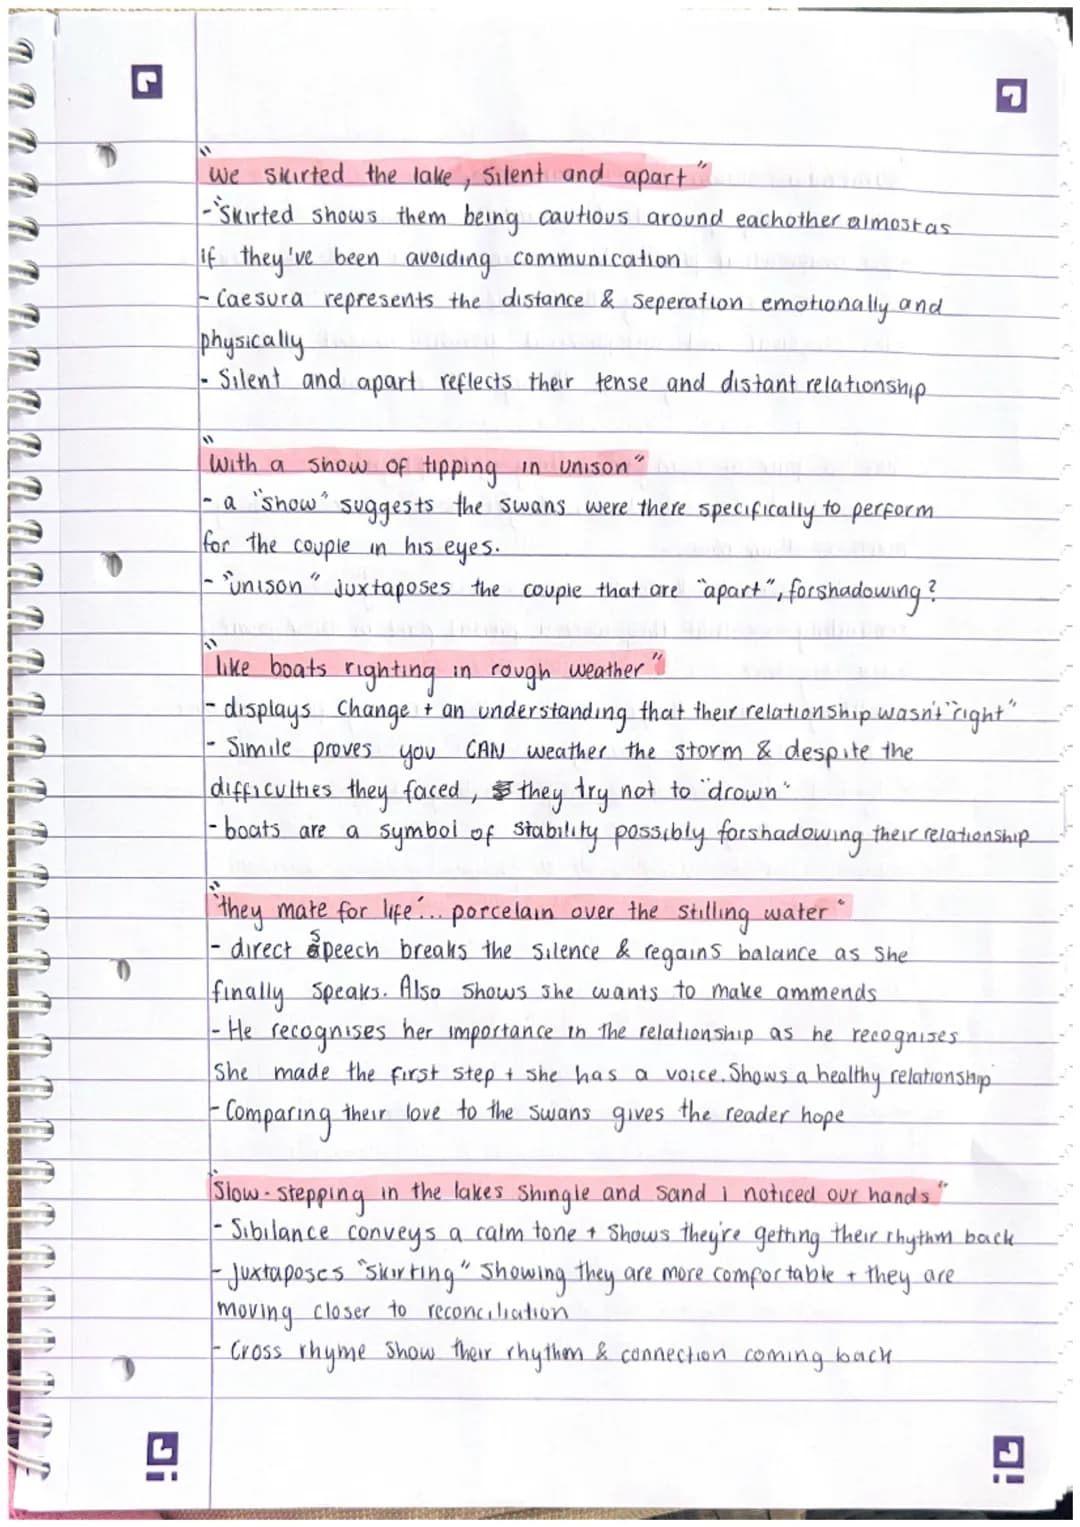 "We skirted the lake, silent and apart"
- "Skirted shows them being cautious around eachother almost as
if they've been avoiding communication
- Caesura represents the distance & seperation emotionally and
physically
- Silent and apart reflects their tense and distant relationship
"With a show of tipping in unison"
- a "show" suggests the swans were there specifically to perform
for the couple in his eyes.
- "unison" juxtaposes the couple that are "apart", forshadowing?
"like boats righting in rough weather"
- displays change + an understanding that their relationship wasn't "right"
- Simile proves you CAN weather the storm & despite the
difficulties they faced, they try not to "drown"
- boats are a symbol of stability possibly forshadowing their relationship
"they mate for life'... porcelain over the stilling water"
- direct speech breaks the silence & regains balance as she
finally speaks. Also shows she wants to make ammends
- He recognises her importance in the relationship as he recognises
She made the first step + she has a voice. Shows a healthy relationship
- Comparing their love to the swans gives the reader hope
"Slow-stepping in the lakes shingle and sand i noticed our hands"
- Sibilance conveys a calm tone + shows they're getting their rhythm back
- Juxtaposes "skirting" showing they are more comfortable + they are
moving closer to reconciliation
- Cross rhyme show their rhythm & connection coming back